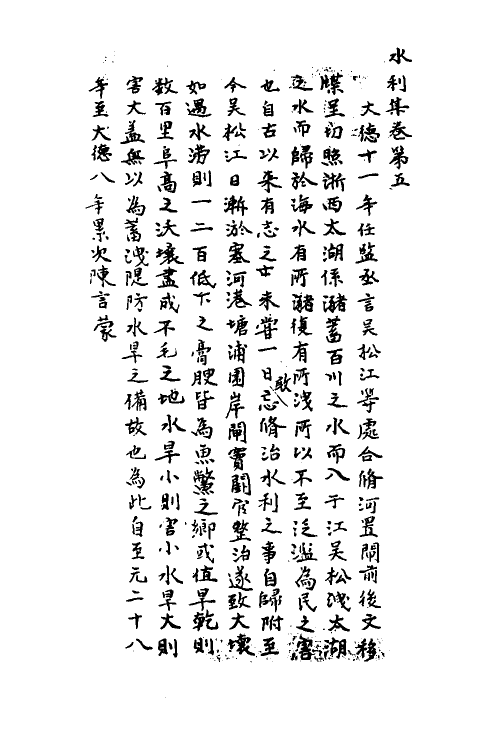 水利集卷第五
大德十一年任監丞言吴松江等處合脩河置閘前後文移
牒呈切照浙西太湖係瀦蓄百川之水而入于江吴松洩太湖
之水而歸於海水有所瀦復有所洩所以不至泛濫為民之害
也自古以来有志之士未甞一日敢忘脩治水利之事自歸附至
今吴松江日漸於塞河港塘浦圍岸閘竇闕官整治遂致大壞
如遇水澇則一二百低下之膏腴皆為魚鱉之鄉或值旱乾則
数百里阜高之沃壤盡成不毛之地水旱小則害小水旱大則
害大盖無以為蓄洩隄防水旱之備故也為此自至元二十八
年至大德八年累次陳言蒙